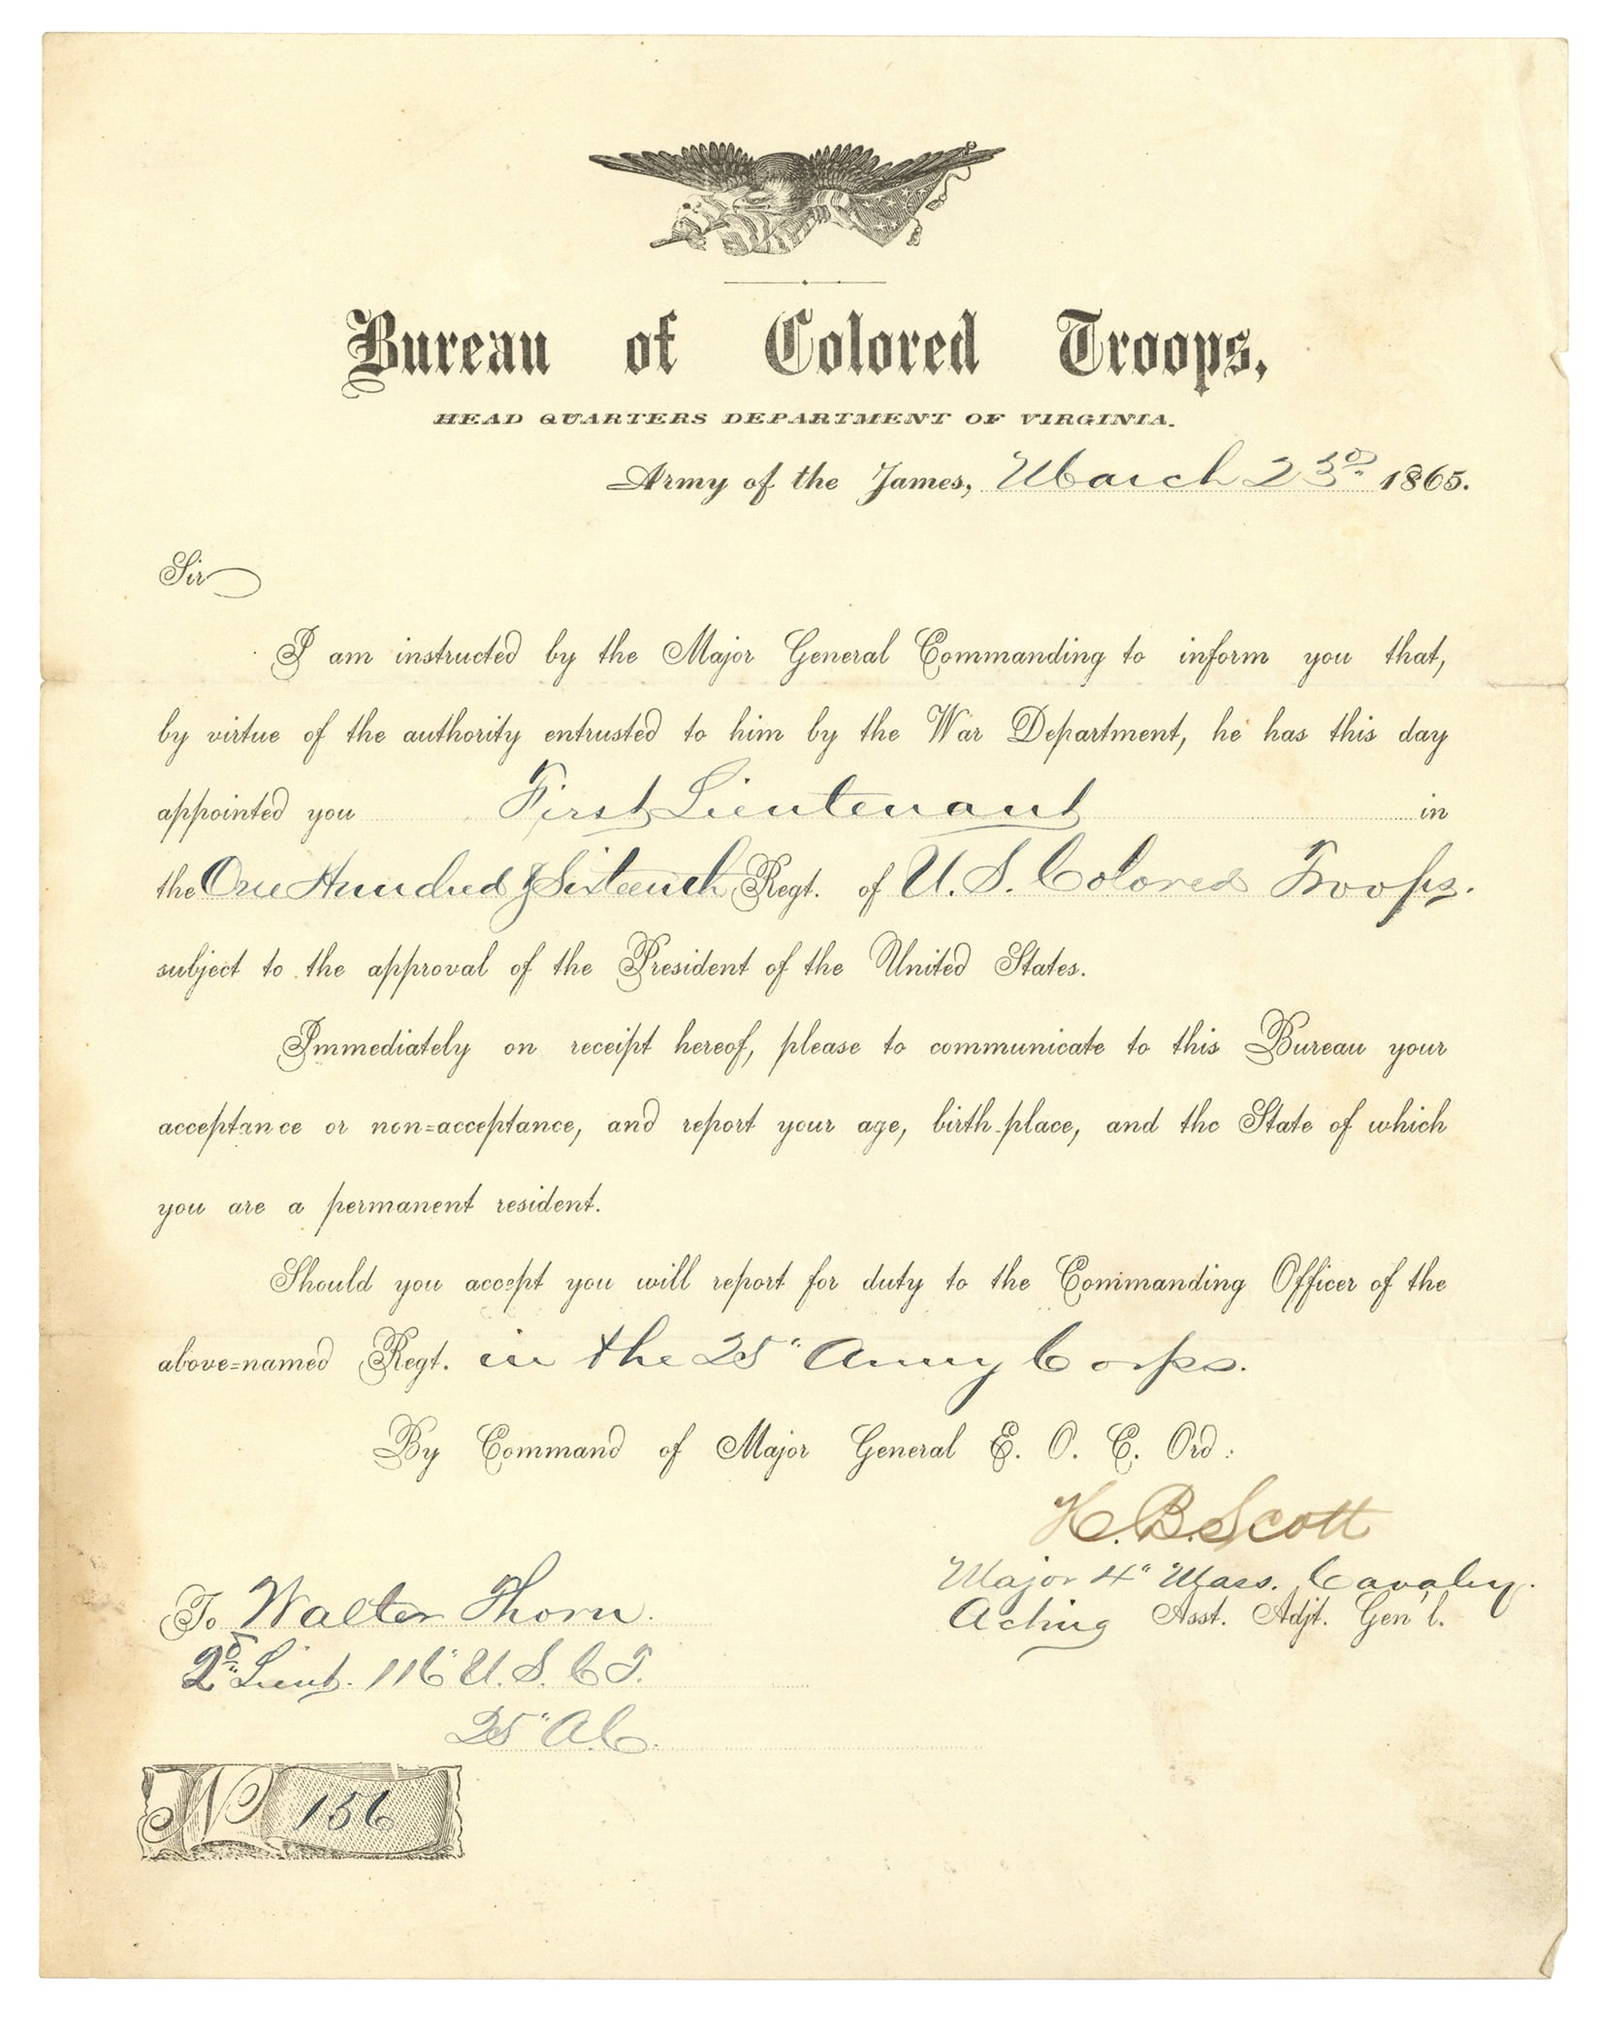 Bureau of Colored Troops,
HEAD QUARTERS DEPARTMENT OF VIRGINIA.
Army of the James, March 23d 1865.
Sir
I am instructed by the Major General Commanding to inform you that,
by virtue of the authority entrusted to him by the War Department, he has this day
appointed you First Lieutenant in
the One Hundred & Sixteenth Regt. of U. S. Colored Troops.
subject to the approval of the President of the United States.
Immediately on receipt hereof, please to communicate to this Bureau your
acceptance or non=acceptance, and report your age, birth-place, and the State of which
you are a permanent resident.
Should you accept you will report for duty to the Commanding Officer of the
above=named Regt. in the 25" Army Corps.
By Command of Major General E. O. C. Ord:
H. B. Scott
Major 4" Mass. Cavalry.
Acting Asst. Adjt. Gen'l.
To Walter Thorn.
2d Lieut. 116" U. S. C T.
25" A. C.
No 156